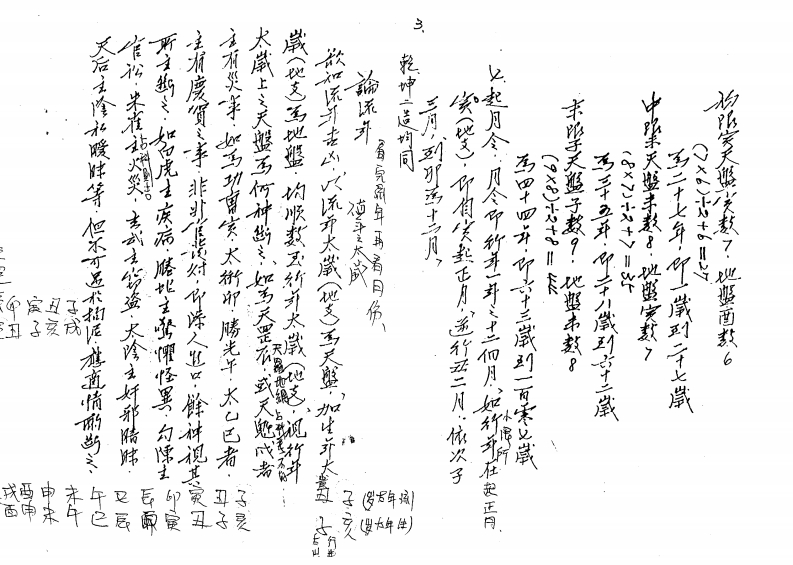 3.
初限寅天盤寅數7，地盤酉數6
(7×6)÷2+6=27
為二十七年，即一歲到二十七歲
中限未天盤未數8，地盤寅數7
(8×7)÷2+7=35
為三十五年，即二十八歲到六十二歲
末限子天盤子數9，地盤未數8
(9×8)÷2+8=44
為四十四年，即六十三歲到一百零七歲
七、起月令，月令即行年一卦之十二個月，如行年在
小限所起正月，
寅(地支)，即自寅起正月，逆行丑二月，依次子
三月，到卯為十二月，
乾坤二造均同
論流年
看完流年再看月份、
值年之太歲
欲知流年吉凶，以流年太歲(地支)為天盤，加生年太
歲(地支)為地盤，均順數至行年太歲(地支)，視行年
太歲上之天盤為何神斷之，如為天罡辰，或天魁戌者
天羅地網
主有災事，如為功曹寅，太衝卯，勝光午，太乙巳者，
主有慶賀之事，非升遷財，即添人進口，餘神視其
所主斷之，如白虎主疾病，騰蛇主驚懼怪異，勾陳主
官訟，朱雀主火災，玄武主節盜，太陰主奸邪暗昧，
天后主陰私曖昧等，但不可過於拘泥，應適情形斷之，
子亥
丑子
寅丑
卯寅
辰卯
巳辰
午巳
未午
申未
酉申
戌酉
子戌
丑亥
寅子
卯丑